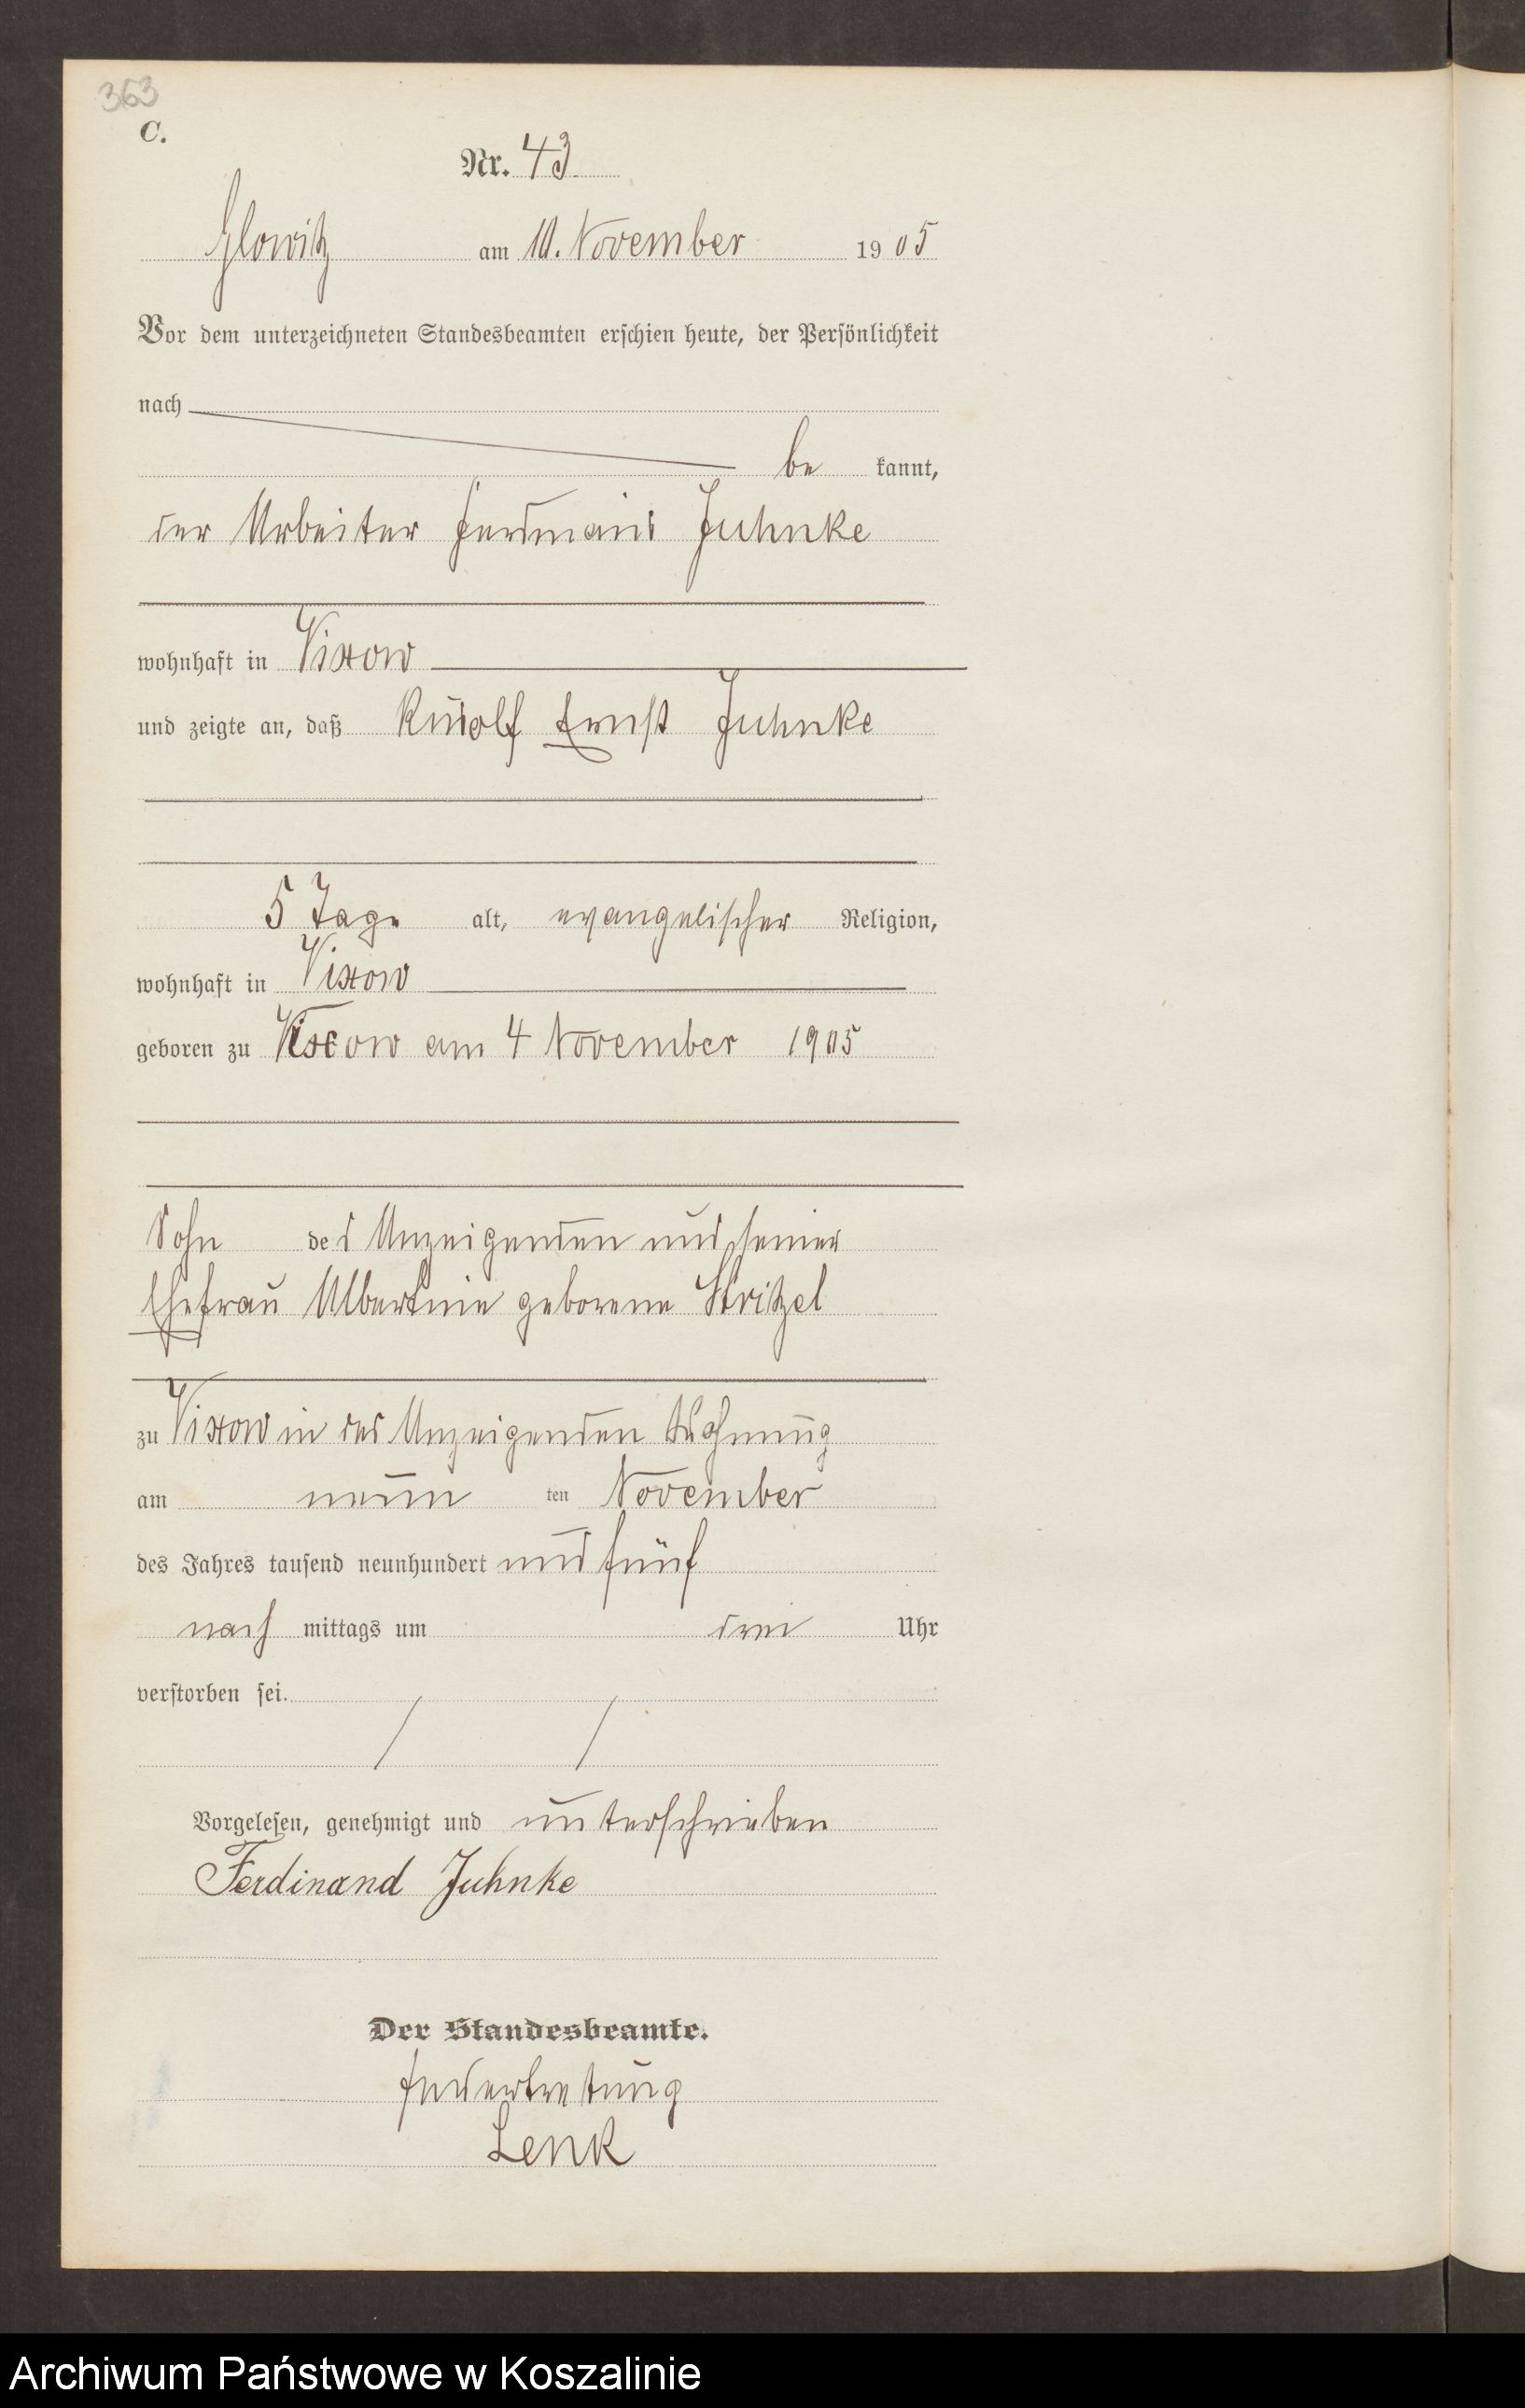 363
C.
Nr. 43
Glowitz am 10. November 1905
Vor dem unterzeichneten Standesbeamten erschien heute, der Persönlichkeit
nach
be kannt,
der Arbeiter Ferdinand Juhnke
wohnhaft in Vixow
und zeigte an, daß Rudolf Ernst Juhnke
5 Tage alt, evangelischer Religion,
wohnhaft in Vixow
geboren zu Vixow am 4 November 1905
Sohn des Anzeigenden und seiner
Ehefrau Albertine geborene Stritzel
zu Vixow in des Anzeigenden Wohnung
am neun ten November
des Jahres tausend neunhundert und fünf
nach mittags um drei Uhr
verstorben sei.
Vorgelesen, genehmigt und unterschrieben
Ferdinand Juhnke
Der Standesbeamte.
In Vertretung
Lenk
Archiwum Państwowe w Koszalinie